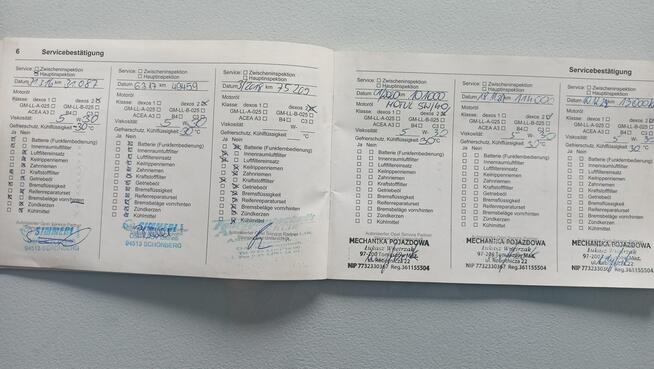 6 Servicebestätigung
Service: Zwischeninspektion
Hauptinspektion
Datum km 31.087
Motoröl
Klasse: dexos 1 dexos 2
GM-LL-A-025 GM-LL-B-025
ACEA A3 B4 C3
Viskosität 5 W- 30
Gefrierschutz, Kühlflüssigkeit -30°C
Ja Nein
Batterie (Funkfernbedienung)
Innenraumluftfilter
Luftfiltereinsatz
Keilrippenriemen
Zahnriemen
Kraftstofffilter
Getriebeöl
Bremsflüssigkeit
Reifenreparaturset
Bremsbeläge vorn/hinten
Zündkerzen
Kühlmittel
Autorisierter Opel Service Partner
SIMMERL
94513 SCHÖNBERG
Service: Zwischeninspektion
Hauptinspektion
Datum km 49459
Motoröl
Klasse: dexos 1 dexos 2
GM-LL-A-025 GM-LL-B-025
ACEA A3 B4 C3
Viskosität 5 W- 30
Gefrierschutz, Kühlflüssigkeit 30°C
Ja Nein
Batterie (Funkfernbedienung)
Innenraumluftfilter
Luftfiltereinsatz
Keilrippenriemen
Zahnriemen
Kraftstofffilter
Getriebeöl
Bremsflüssigkeit
Reifenreparaturset
Bremsbeläge vorn/hinten
Zündkerzen
Kühlmittel
94513 SCHÖNBERG
Service: Zwischeninspektion
Hauptinspektion
Datum 2018 km 75 209
Motoröl
Klasse: dexos 1 dexos 2
GM-LL-A-025 GM-LL-B-025
ACEA A3 B4 C3
Viskosität W-
Gefrierschutz, Kühlflüssigkeit °C
Ja Nein
Batterie (Funkfernbedienung)
Innenraumluftfilter
Luftfiltereinsatz
Keilrippenriemen
Zahnriemen
Kraftstofffilter
Getriebeöl
Bremsflüssigkeit
Reifenreparaturset
Bremsbeläge vorn/hinten
Zündkerzen
Kühlmittel
Autorisierter Opel Service Partner
Servicebestätigung
Service: Zwischeninspektion
Hauptinspektion
Datum km 101000
Motoröl MOTUL 5W/40
Klasse: dexos 1 dexos 2
GM-LL-A-025 GM-LL-B-025
ACEA A3 B4 C3
Viskosität 5 W- 30
Gefrierschutz, Kühlflüssigkeit 30°C
Ja Nein
Batterie (Funkfernbedienung)
Innenraumluftfilter
Luftfiltereinsatz
Keilrippenriemen
Zahnriemen
Kraftstofffilter
Getriebeöl
Bremsflüssigkeit
Reifenreparaturset
Bremsbeläge vorn/hinten
Zündkerzen
Kühlmittel
Autorisierter Opel Service Partner
MECHANIKA POJAZDOWA
NIP 7732330367 Reg.361155504
Service: Zwischeninspektion
Hauptinspektion
Datum km
Motoröl
Klasse: dexos 1 dexos 2
GM-LL-A-025 GM-LL-B-025
ACEA A3 B4 C3
Viskosität 5 W- 30
Gefrierschutz, Kühlflüssigkeit 30°C
Ja Nein
Batterie (Funkfernbedienung)
Innenraumluftfilter
Luftfiltereinsatz
Keilrippenriemen
Zahnriemen
Kraftstofffilter
Getriebeöl
Bremsflüssigkeit
Reifenreparaturset
Bremsbeläge vorn/hinten
Zündkerzen
Kühlmittel
MECHANIKA POJAZDOWA
NIP 7732330367 Reg.361155504
Service: Zwischeninspektion
Hauptinspektion
Datum
Motoröl
Klasse: dexos 1
GM-LL-A-025
ACEA A3 B4
Viskosität 5
Gefrierschutz, Kühlflüssigkeit 30°C
Ja Nein
Batterie (Funkfernbedienung)
Innenraumluftfilter
Luftfiltereinsatz
Keilrippenriemen
Zahnriemen
Kraftstofffilter
Getriebeöl
Bremsflüssigkeit
Reifenreparaturset
Bremsbeläge vorn/hinten
Zündkerzen
Kühlmittel
MECHANIKA POJAZDOWA
NIP 7732330367 Reg.361155504